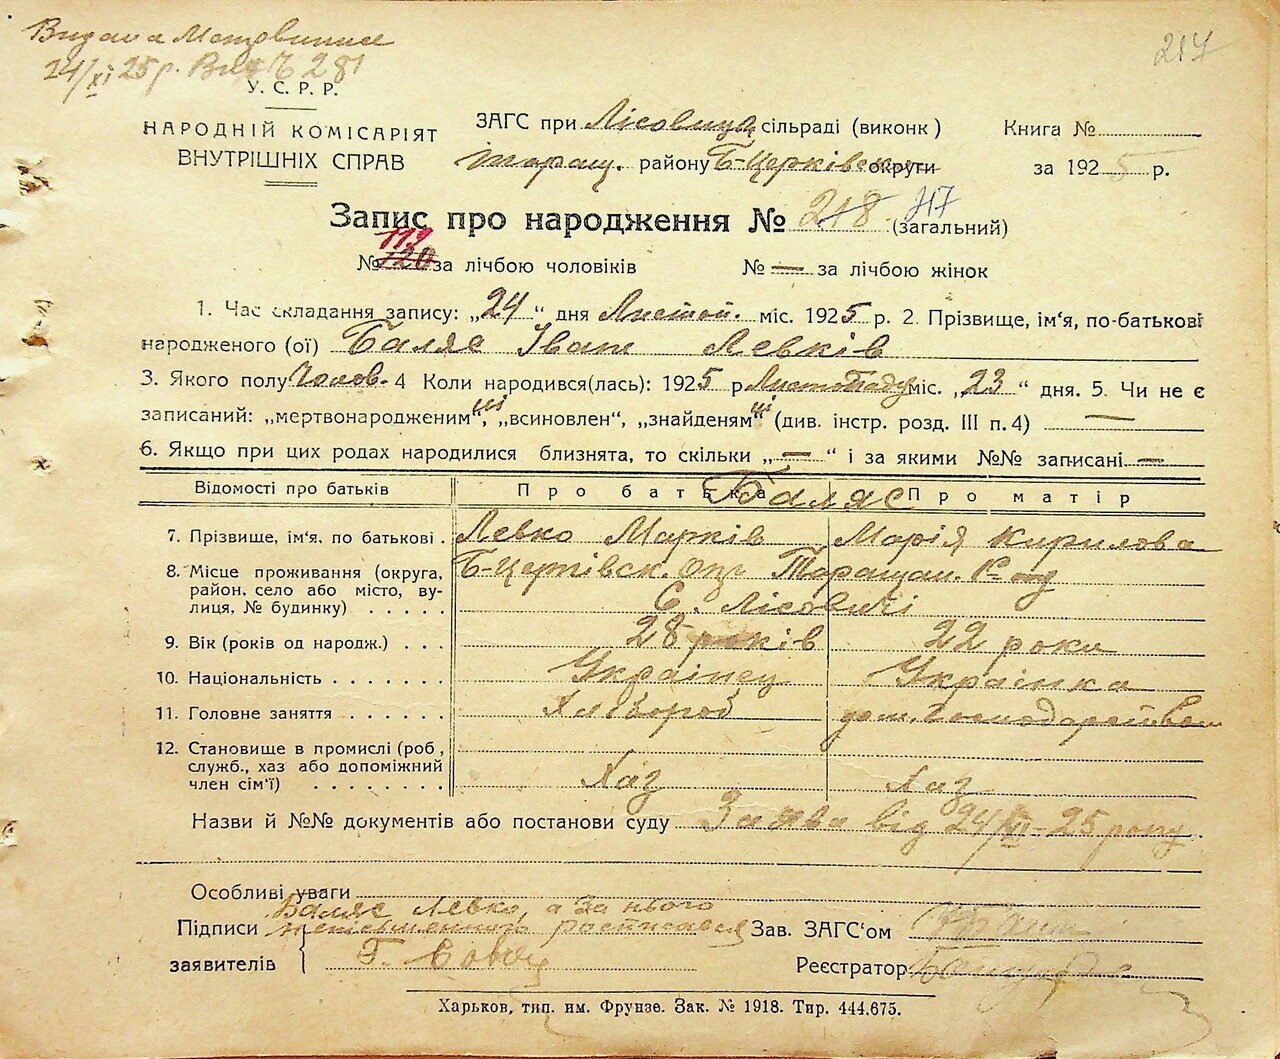 217
24/XI 25 р. 281
У. С. Р. Р.
НАРОДНІЙ КОМІСАРІЯТ
ВНУТРІШНІХ СПРАВ
ЗАГС при Лісовицк сільраді (виконк)
Таращ. району Б-Церківськ округи
Книга №
за 1925 р.
Запис про народження № 218 217 (загальний)
№ 120 119 за лічбою чоловіків № — за лічбою жінок
1. Час складання запису: „24“ дня Листоп. міс. 1925 р. 2. Прізвище, ім'я, по-батькові
народженого (ої) Баляс Іван Левків
3. Якого полу Чолов. 4 Коли народився(лась): 1925 р Листопаду міс. „23“ дня. 5. Чи не є
записаний: „мертвонародженим“ ні, „всиновлен“, „знайденям“ ні (див. інстр. розд. III п. 4) —
6. Якщо при цих родах народилися близнята, то скільки „—“ і за якими №№ записані —
Відомості про батьків Про батька Про матір
Баляс
7. Прізвище, ім'я, по батькові . Левко Марків Марія Кирилова
8. Місце проживання (округа, район, село або місто, вулиця, № будинку) . . . . . Б-Церківськ. Окр Таращан. Р-ну
С. Лісовичі
9. Вік (років од народж.) . . . 28 років 22 роки
10. Національність . . . . . . . Українец Українка
11. Головне заняття . . . . . . Хлібороб дом. Господарством
12. Становище в промислі (роб, служб., хаз або допоміжний член сім'ї) . . . . . . . . Хаз Хаз
Назви й №№ документів або постанови суду Заява від 24/XI-25 року
Особливі уваги
Підписи заявителів Баляс Левко, а за нього
неписьменного росписався
Г. Совец
Зав. ЗАГС'ом
Реєстратор
Харьков, тип. им. Фрунзе. Зак. № 1918. Тир. 444.675.